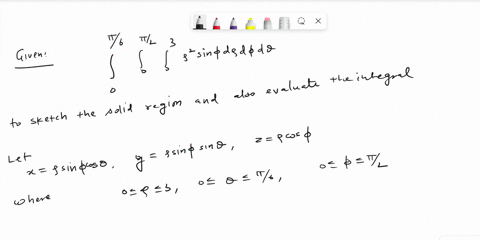 Given: ∫₀^{π/6} ∫₀^{π/2} ∫₀^{3} ρ² sinϕ dρ dϕ dθ
to sketch the solid region and also evaluate the integral
Let
x = ρ sinϕ cosθ, y = ρ sinϕ sinθ, z = ρ cosϕ
where 0 ≤ ρ ≤ 3, 0 ≤ θ ≤ π/6, 0 ≤ ϕ ≤ π/2